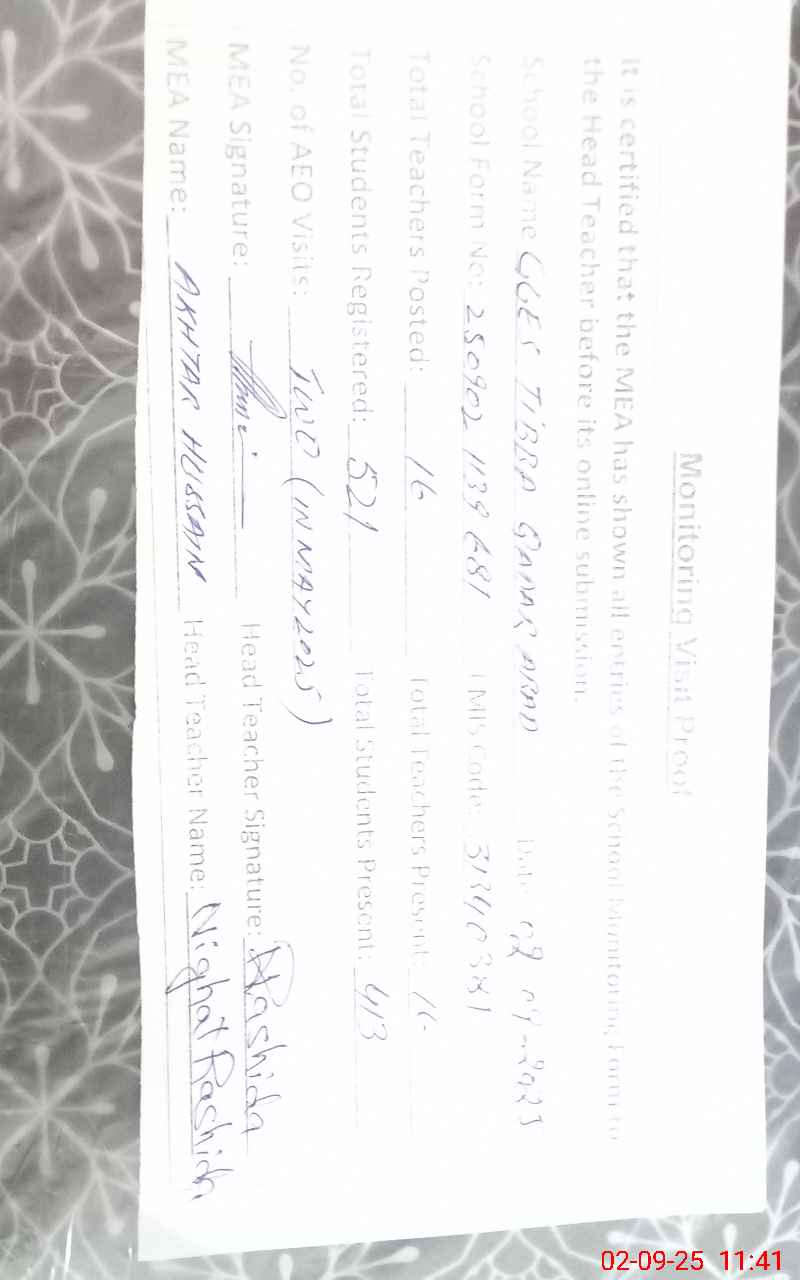 Monitoring Visit Proof
It is certified that the MEA has shown all entries of the School Monitoring Form to
the Head Teacher before its online submission.
School Name GGES TIBBA QADAR ABAD Date 02 09-2025
School Form No: 250902 1139 681 EMIS Code: 31340381
Total Teachers Posted: 16 Total Teachers Present: 16
Total Students Registered: 521 Total Students Present: 413
No. of AEO Visits: TWO (IN MAY 2025)
MEA Signature: Head Teacher Signature: Rashida
MEA Name: AKHTAR HUSSAIN Head Teacher Name: Nighat Rashida
02-09-25 11:41